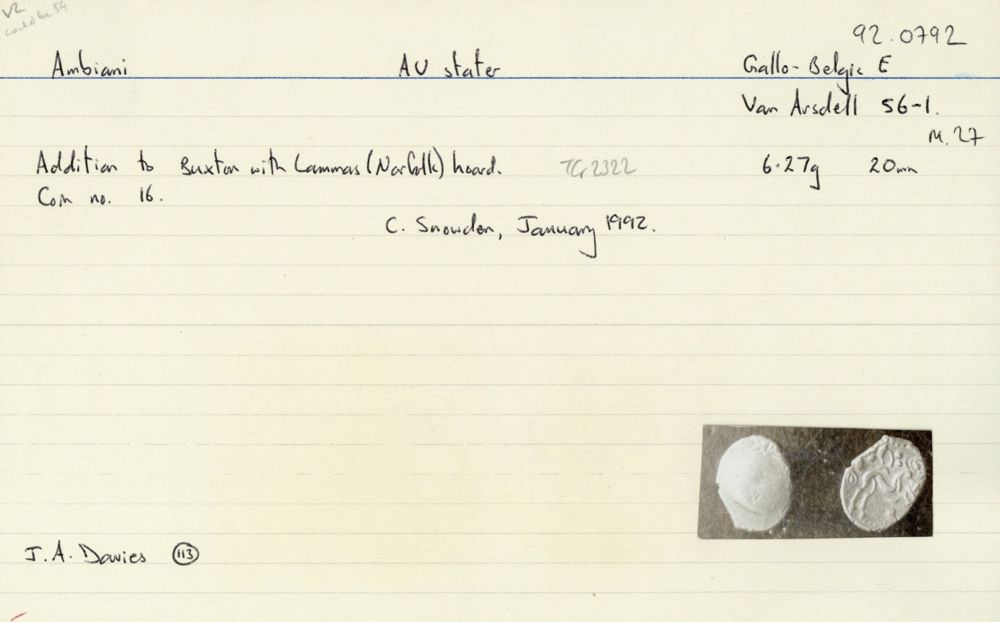 V2
could be 54
92.0792
Ambiani AU stater Gallo-Belgic E
Van Arsdell 56-1.
M.27
Addition to Buxton with Lammas (Norfolk) hoard. TG 2322 6.27g 20mm
Coin no. 16.
C. Snowden, January 1992.
J. A. Davies 113